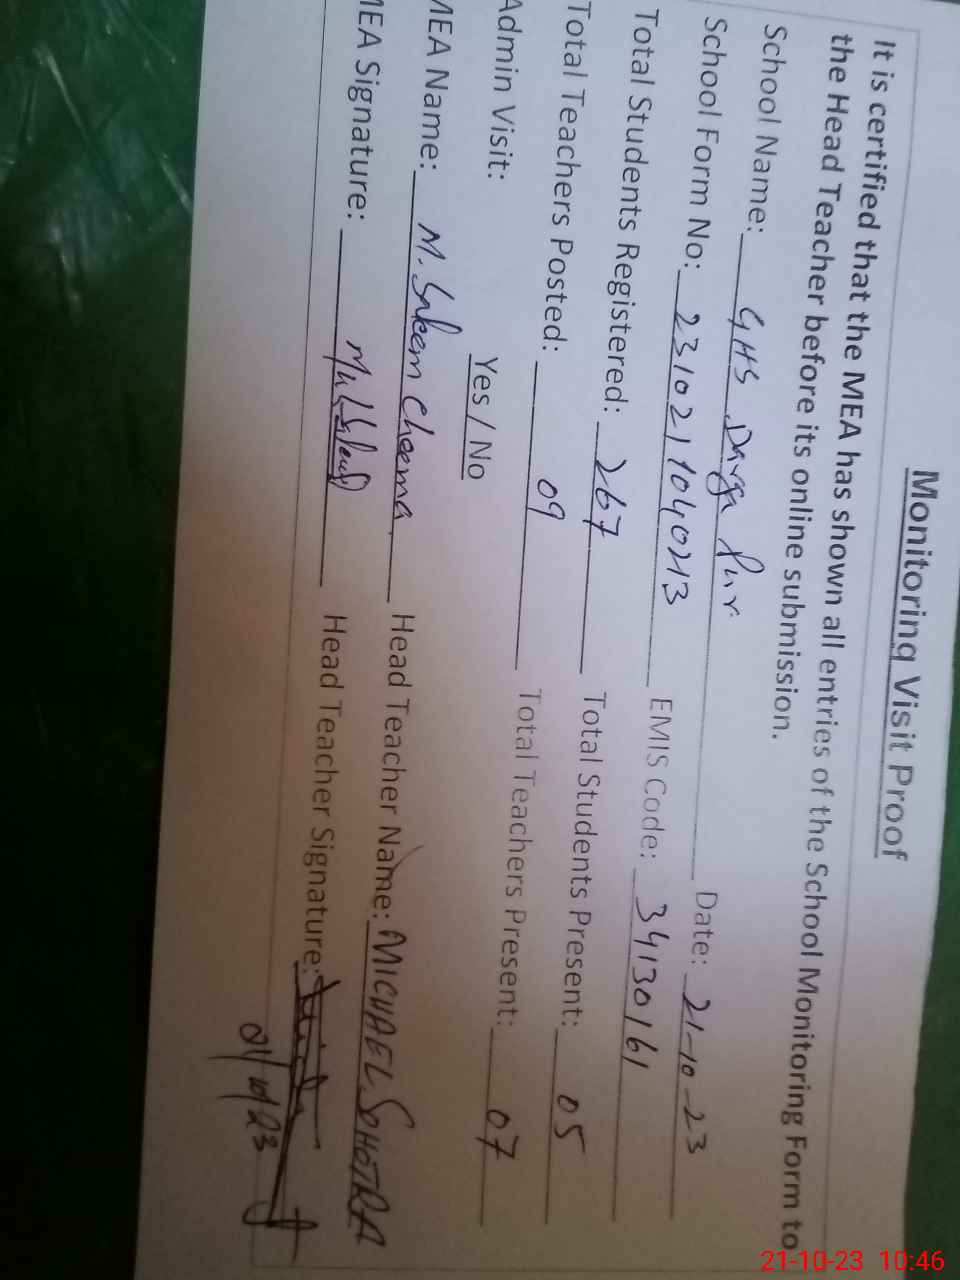 Monitoring Visit Proof
It is certified that the MEA has shown all entries of the School Monitoring Form to
the Head Teacher before its online submission.
School Name: GHS Darga Pur Date: 21-10-23
School Form No: 2310211040213 EMIS Code: 34130161
Total Students Registered: 267 Total Students Present: 05
Total Teachers Posted: 09 Total Teachers Present: 07
Admin Visit: Yes / No
MEA Name: M. Saleem Cheema Head Teacher Name: MICHAEL SOHOTRA
MEA Signature: Head Teacher Signature:
21/10/23
21-10-23 10:46